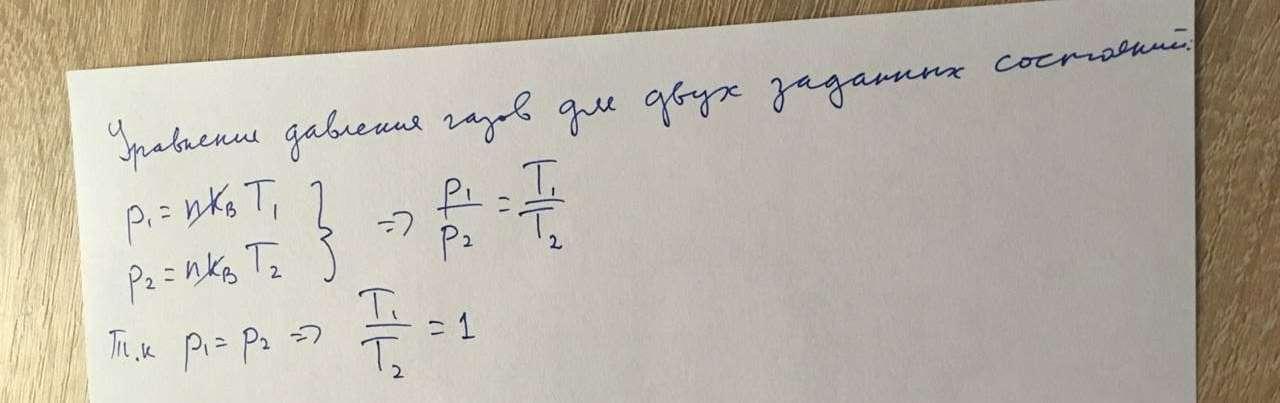 Уравнение давления газов для двух заданных состояний:
p₁ = nk_B T₁ } => p₁/p₂ = T₁/T₂
p₂ = nk_B T₂
Т.к p₁ = p₂ => T₁/T₂ = 1